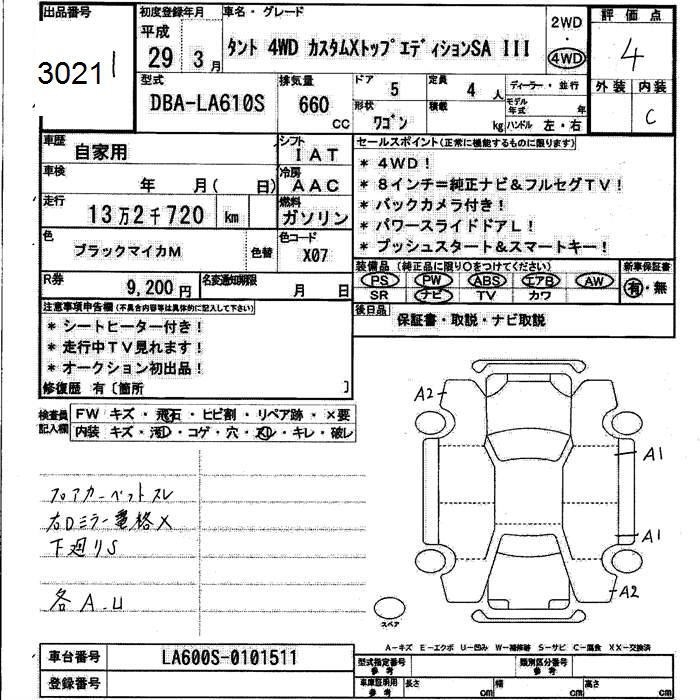 出品番号
3021
初度登録年月
平成
29 3月
車名・グレード
タント 4WD カスタムXトップエディションSA III
2WD
・
4WD
評価点
4
外装 内装
C
型式
DBA-LA610S
排気量
660
CC
ドア
5
定員
4 人
ディーラー・並行
形状
ワゴン
積載
kg
モデル年式
年
ハンドル 左・右
車歴
自家用
シフト
IAT
車検
年 月( 日)
冷房
AAC
走行
13万2千720 km
燃料
ガソリン
色
ブラックマイカM
色替
色コード
X07
R券
9,200円
名変通知期限
月 日
セールスポイント(正常に機能するものに限ります)
* 4WD!
* 8インチ=純正ナビ&フルセグTV!
* バックカメラ付き!
* パワースライドドアL!
* プッシュスタート&スマートキー!
装備品(純正品に限り○をつけてください)
PS PW ABS エアB AW
SR ナビ TV カワ
新車保証書
有・無
後日品
保証書・取説・ナビ取説
注意事項申告欄(不具合内容等は具体的に記入して下さい)
* シートヒーター付き!
* 走行中TV見れます!
* オークション初出品!
修復歴 有〔箇所 〕
検査員
記入欄
FW キズ・飛石・ヒビ割・リペア跡・×要
内装 キズ・汚レ・コゲ・穴・スレ・キレ・破レ
フロアカーペットスレ
右Dミラー電格X
下廻りS
各A.U
A2
A1
A1
A2
スペア
A-キズ E-エクボ U-凹み W-補修跡 S-サビ C-腐食 XX-交換済
車台番号
LA600S-0101511
登録番号
型式指定番号
参考
類別区分番号
参考
車庫証明用
参考
長さ cm
幅 cm
高さ cm